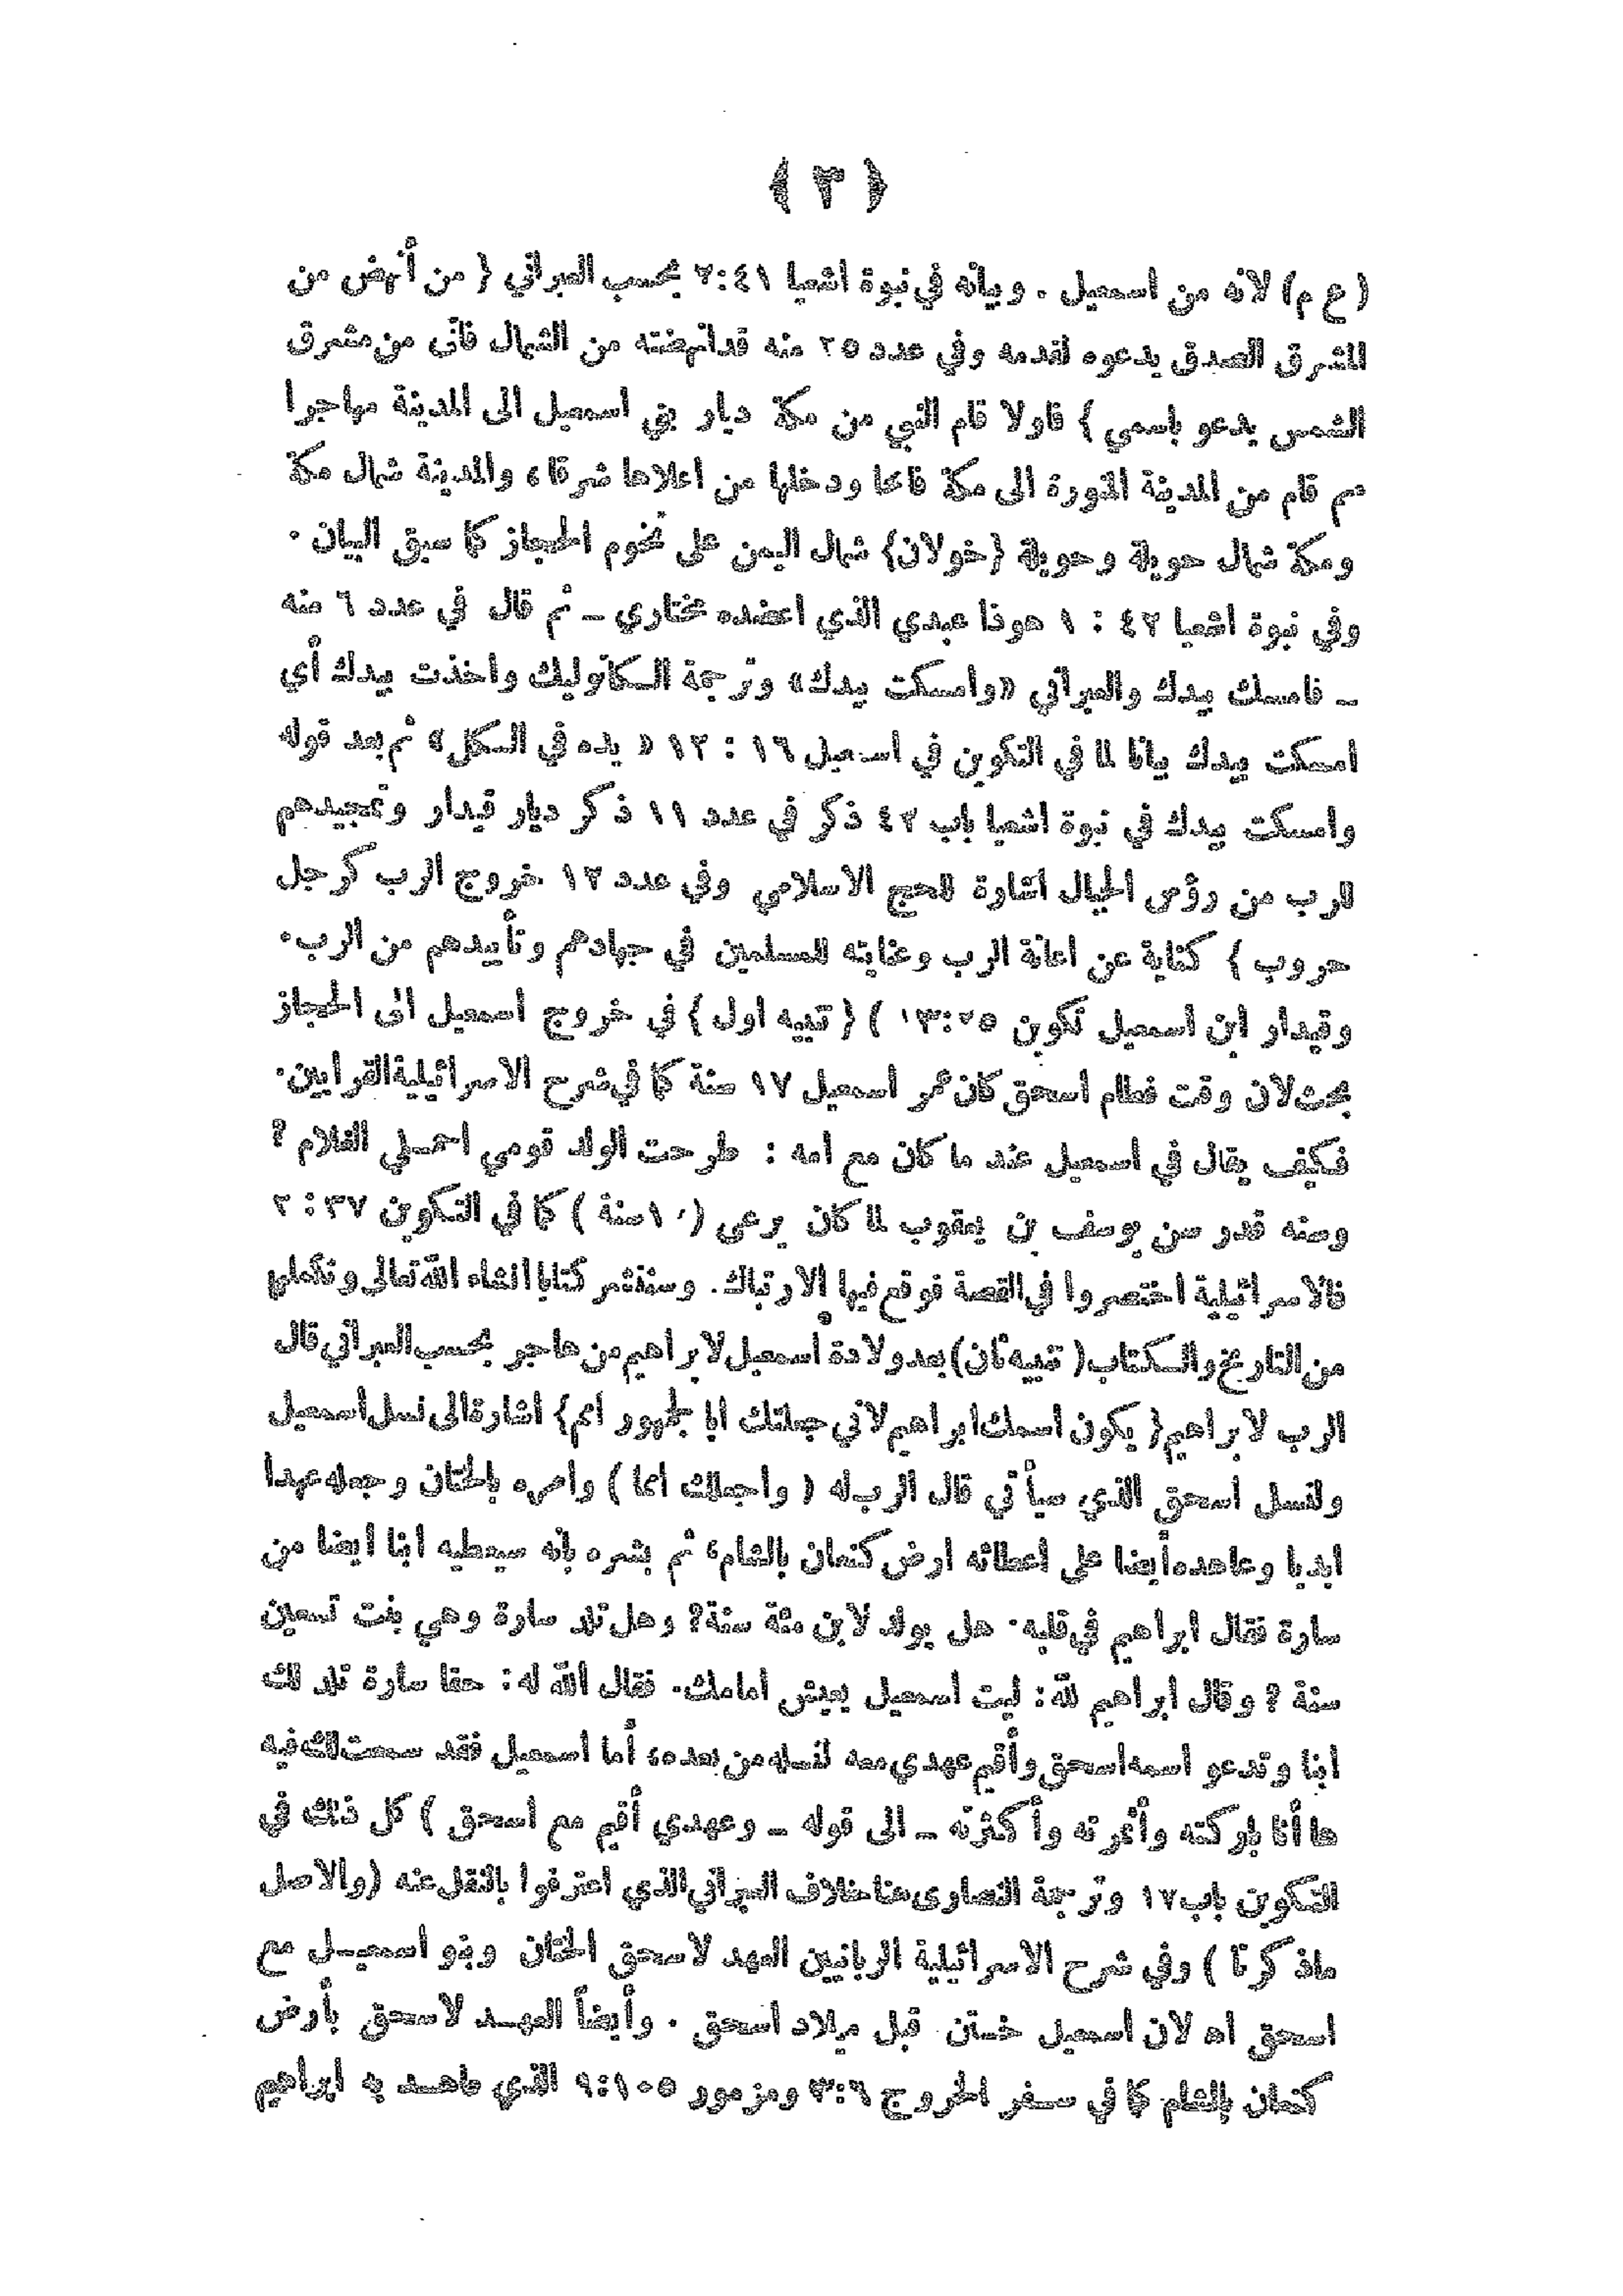 ﴿ ٣ ﴾
( ع م ) لانه من اسمعيل . وبيانه في نبوة اشعيا ٤١:٢ بحسب العبراني { من أنهض من
المشرق الصدق يدعوه لقدمه وفي عدد ٢٥ منه قد انهضته من الشمال فأتى من مشرق
الشمس يدعو باسمي } فاولا قام النبي من مكة ديار بني اسمعيل الى المدينة مهاجرا
ثم قام من المدينة المنورة الى مكة فاتحا ودخلها من اعلاها شرقا ، والمدينة شمال مكة
ومكة شمال حويلة وحويلة {خولان} شمال اليمن على تخوم الحجاز كما سبق البيان .
وفي نبوة اشعيا ٤٢ : ١ هوذا عبدي الذي اعضده مختاري ــ ثم قال في عدد ٦ منه
ــ فامسك بيدك والعبراني «وامسكت بيدك» وترجمة الكاثوليك واخذت بيدك أي
امسكت بيدك بيانا لما في التكوين في اسمعيل ١٦ : ١٢ « يده في الكل» ثم بعد قوله
وامسكت بيدك في نبوة اشعيا باب ٤٢ ذكر في عدد ١١ ذكر ديار قيدار وتمجيدهم
للرب من رؤس الجبال اشارة للحج الاسلامي وفي عدد ١٣ خروج الرب كرجل
حروب } كناية عن اعانة الرب وعنايته للمسلمين في جهادهم وتأييدهم من الرب.
وقيدار ابن اسمعيل تكوين ٢٥:١٣ ) { تنبيه اول } في خروج اسمعيل الى الحجاز
بحث لان وقت فطام اسحق كان عمر اسمعيل ١٧ سنة كما في شرح الاسرائيلية القرايين.
فكيف يقال في اسمعيل عند ما كان مع امه : طرحت الولد قومي احملي الغلام ؟
وسنه قدر سن يوسف بن يعقوب لما كان يرعى ( سنة ) كما في التكوين ٣٧ : ٢
فالاسرائيلية اختصروا في القصة فوقع فيها الارتباك. وسننشر كتابا انشاء الله تعالى ونكملها
من التاريخ والكتاب ( تنبيه ثان ) بعد ولادة اسمعيل لابراهيم من هاجر بحسب العبراني قال
الرب لابراهيم { يكون اسمك ابراهيم لاني جعلتك ابا لجمهور امم } اشارة الى نسل اسمعيل
ولنسل اسحق الذي سيأتي قال الرب له ( واجعلك امما ) وامره بالختان وجعله عهدا
ابديا وعاهده أيضا على اعطائه ارض كنعان بالشام، ثم بشره بانه سيعطيه ابنا ايضا من
سارة فقال ابراهيم في قلبه. هل يولد لابن مئة سنة؟ وهل تلد سارة وهي بنت تسعين
سنة ؟ وقال ابراهيم لله : ليت اسمعيل يعيش امامك. فقال الله له : حقا سارة تلد لك
ابنا وتدعو اسمه اسحق وأقيم عهدي معه لنسله من بعده، أما اسمعيل فقد سمعت لك فيه
ها أنا باركته وأثمرته وأكثرته ــ الى قوله ــ وعهدي أقيم مع اسحق ) كل ذلك في
التكوين باب ١٧ وترجمة النصارى هنا خلاف العبراني الذي اعترفوا بالنقل عنه (والاصل
ماذكرنا ) وفي شرح الاسرائيلية الربانيين العهد لاسحق الختان وبنو اسمعيل مع
اسحق اه لان اسمعيل ختن قبل ميلاد اسحق . وأيضاً العهد لاسحق بأرض
كنعان بالشام كما في سفر الخروج ٦:٣ ومزمور ١٠٥:٩ الذي عاهد به ابراهيم